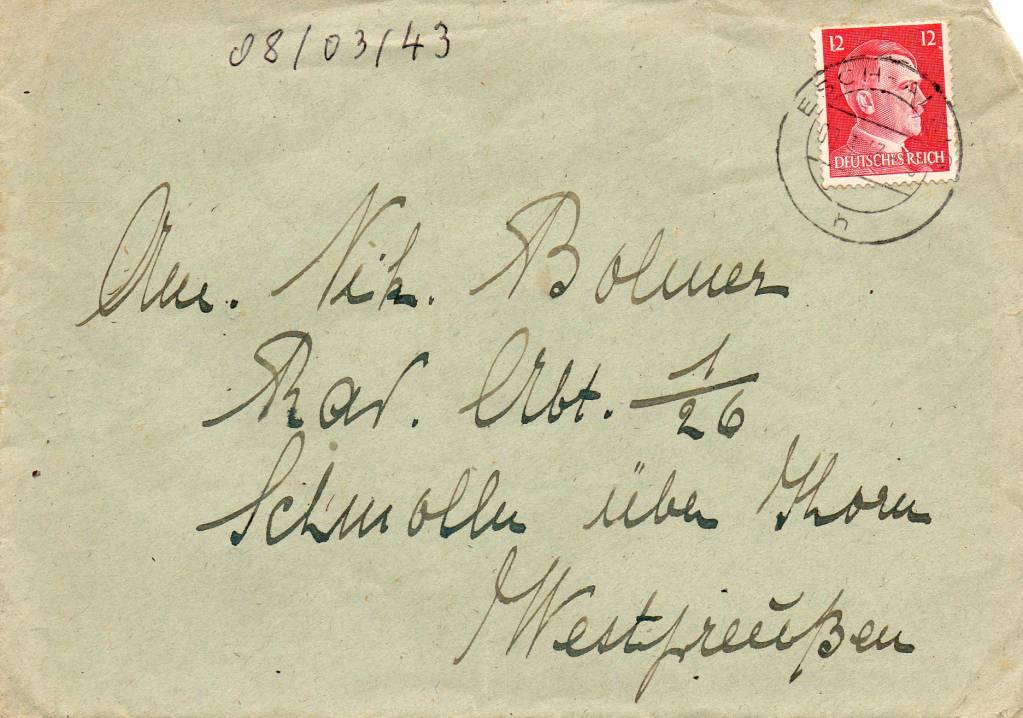 08/03/43
12 12
DEUTSCHES REICH
ESCH-AL
h
Am. Nik. Bolmer
Rav. Abt. 1/26
Schmolln über Thorn
Westpreußen